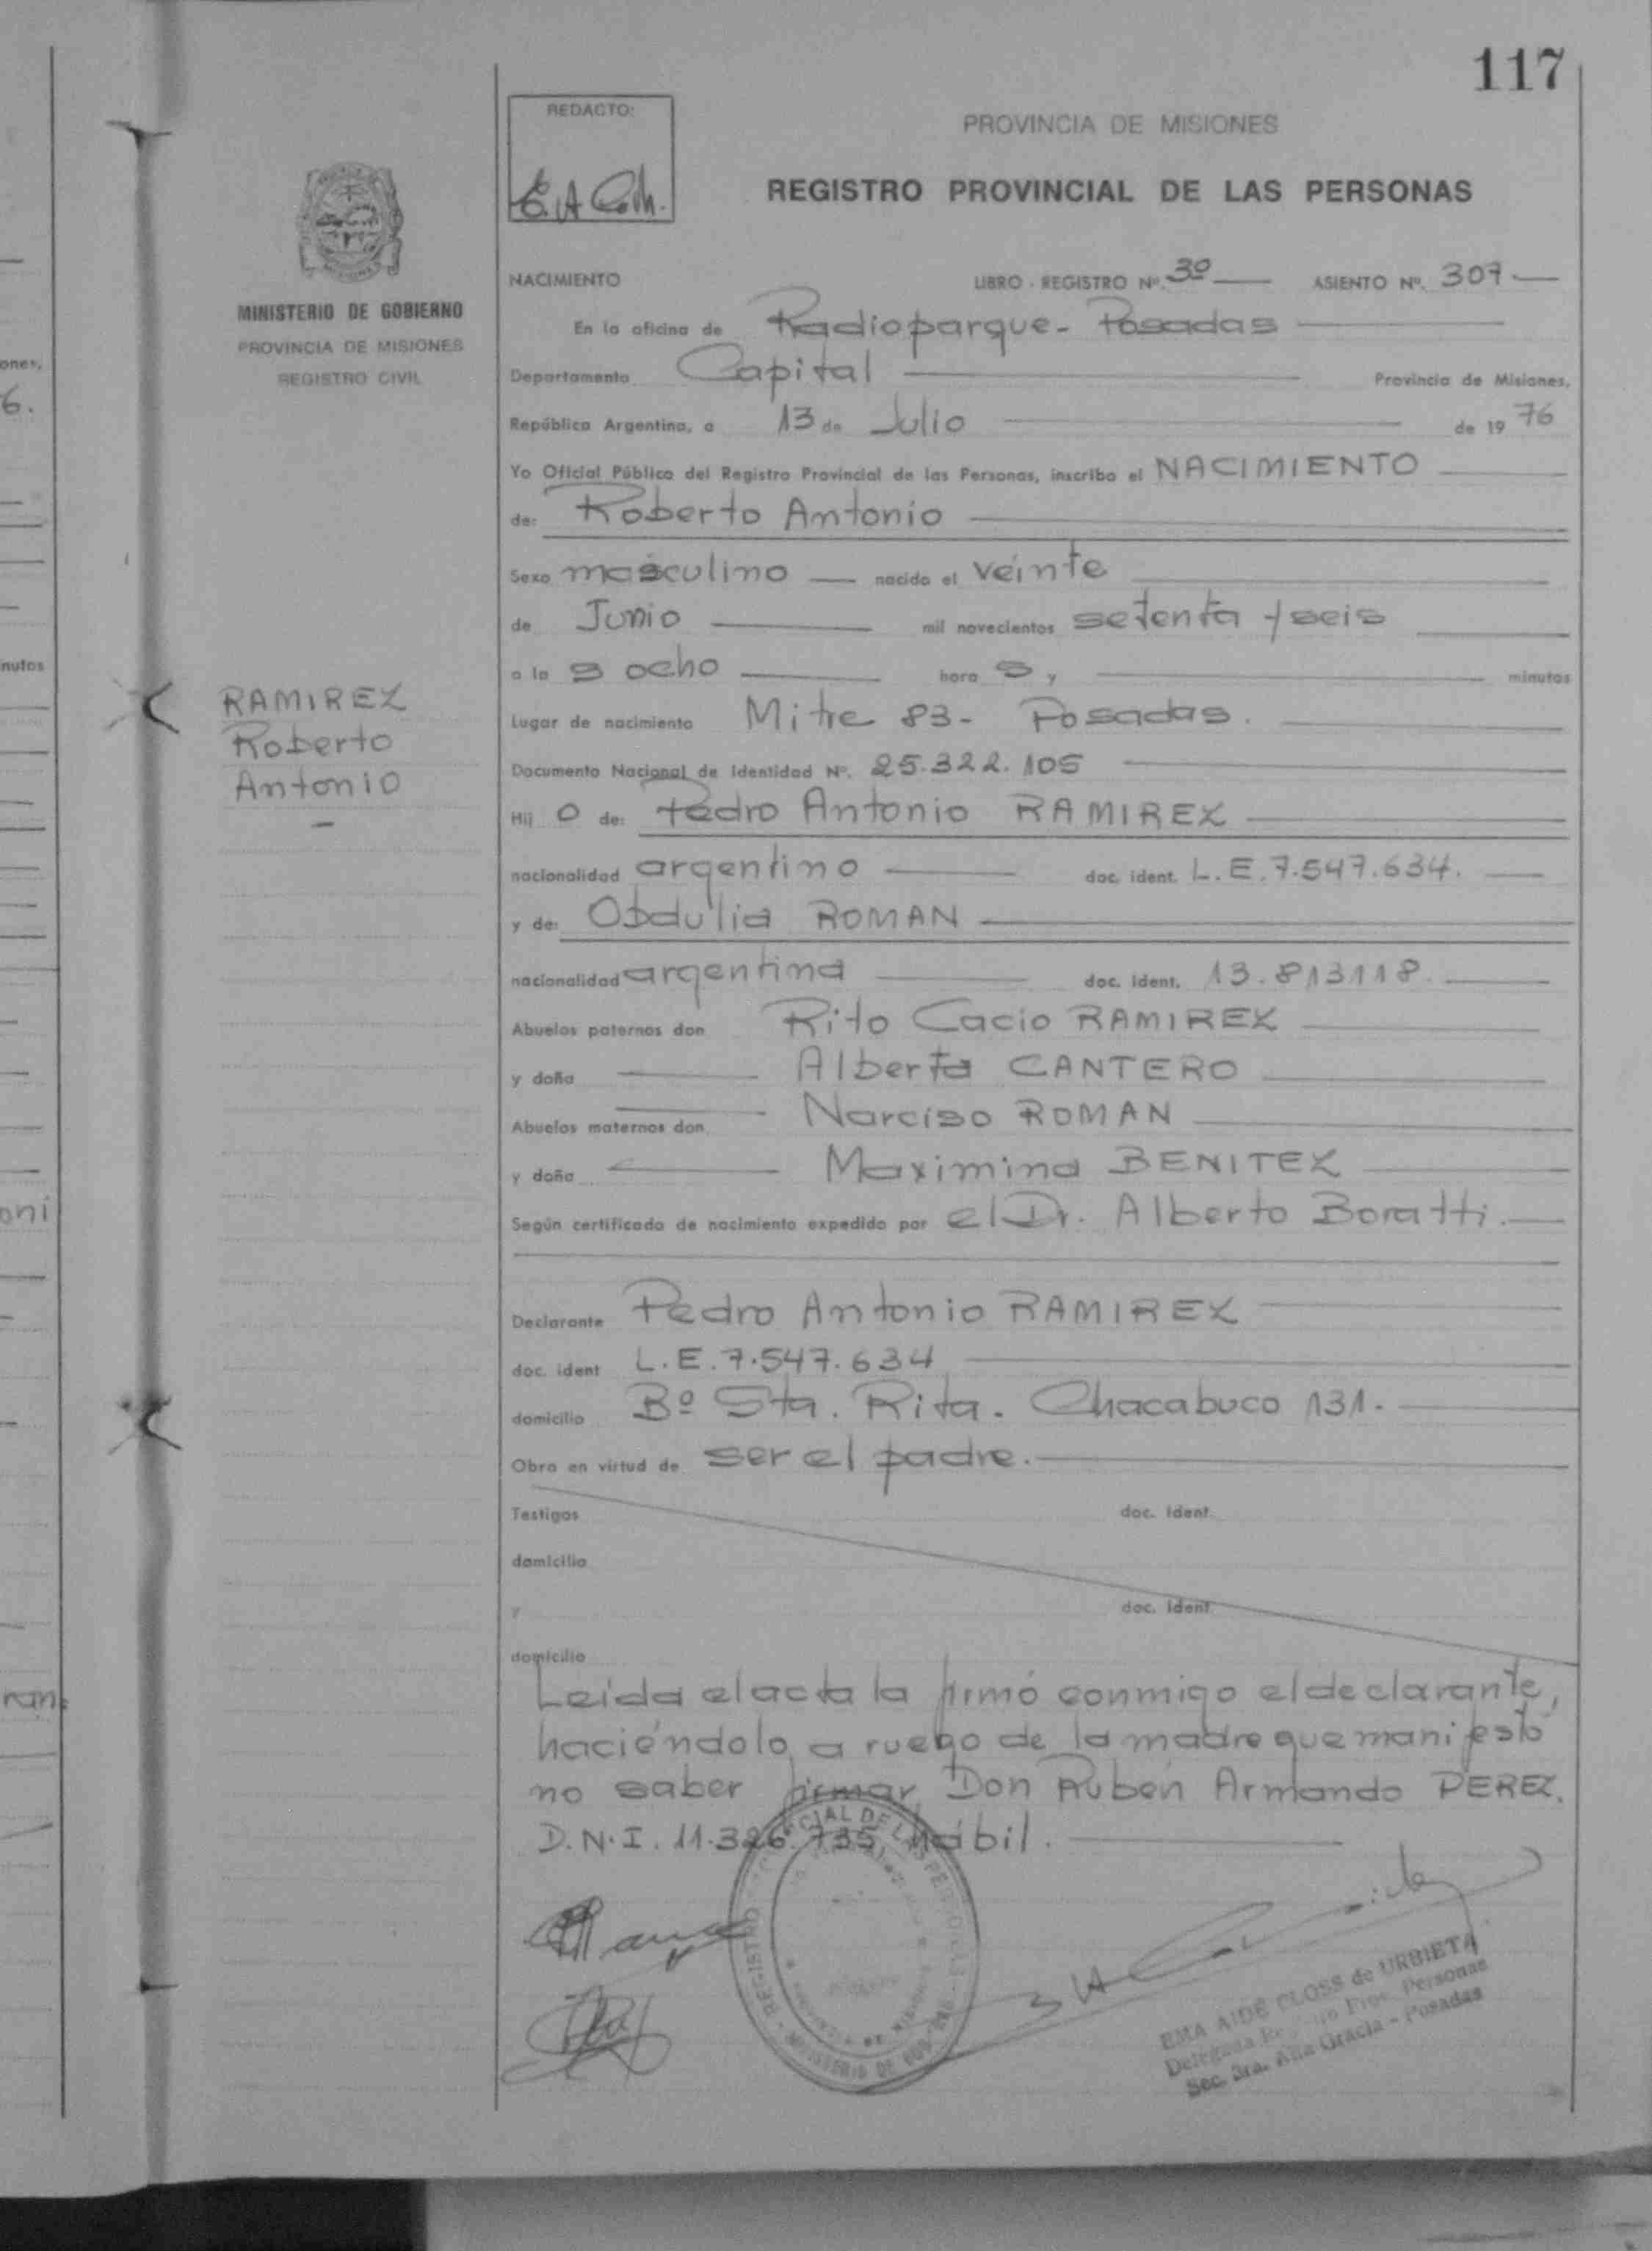 117
REDACTO:
PROVINCIA DE MISIONES
REGISTRO PROVINCIAL DE LAS PERSONAS
MINISTERIO DE GOBIERNO
PROVINCIA DE MISIONES
REGISTRO CIVIL
RAMIREZ
Roberto
Antonio
NACIMIENTO LIBRO - REGISTRO Nº. 3º ASIENTO Nº. 307
En la oficina de Radioparque - Posadas
Departamento Capital Provincia de Misiones,
República Argentina, a 13 de Julio de 19 76
Yo Oficial Público del Registro Provincial de las Personas, inscribo el NACIMIENTO
de: Roberto Antonio
Sexo masculino nacido el veinte
de Junio mil novecientos setenta y seis
a las ocho horas y minutos
Lugar de nacimiento Mitre 83 - Posadas.
Documento Nacional de Identidad Nº. 25.322.105
Hijo de: Pedro Antonio RAMIREZ
nacionalidad argentino doc. ident. L.E. 7.547.634.
y de: Obdulia ROMAN
nacionalidad argentina doc. ident. 13.813118.
Abuelos paternos don Rito Cacio RAMIREZ
y doña Alberta CANTERO
Abuelos maternos don Narciso ROMAN
y doña Maximina BENITEZ
Según certificado de nacimiento expedido por el Dr. Alberto Boratti.
Declarante Pedro Antonio RAMIREZ
doc. ident L.E. 7.547.634
domicilio Bº Sta. Rita. Chacabuco 131.
Obra en virtud de ser el padre.
Testigos doc. ident.
domicilio
y doc. ident.
domicilio
Leida el acta la firmó conmigo el declarante,
haciéndolo a ruego de la madre que manifestó
no saber firmar Don Rubén Armando PEREZ.
D.N.I. 11.326.735, hábil.
EMA AIDÉ CLOSS de URBIETA
Delegada Registro Prov. Personas
Sec. 3ra. Alta Gracia - Posadas